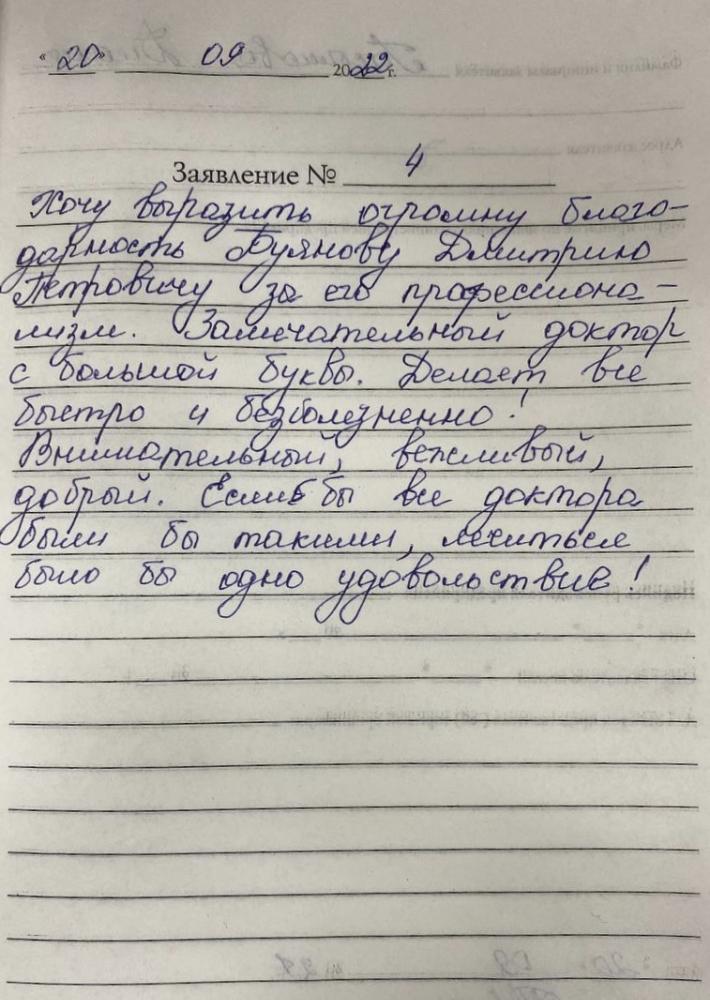 "20" 09 2022 г.
Заявление № 4
Хочу выразить огромну благо-
дарность Буянову Дмитрию
Петровичу за его професиона-
лизм. Замечательный доктор
с большой буквы. Делает все
быстро и безболезненно!
Внимательный, вежливый,
добрый. Если бы все доктора
были бы такими, лечиться
было бы одно удовольствие!